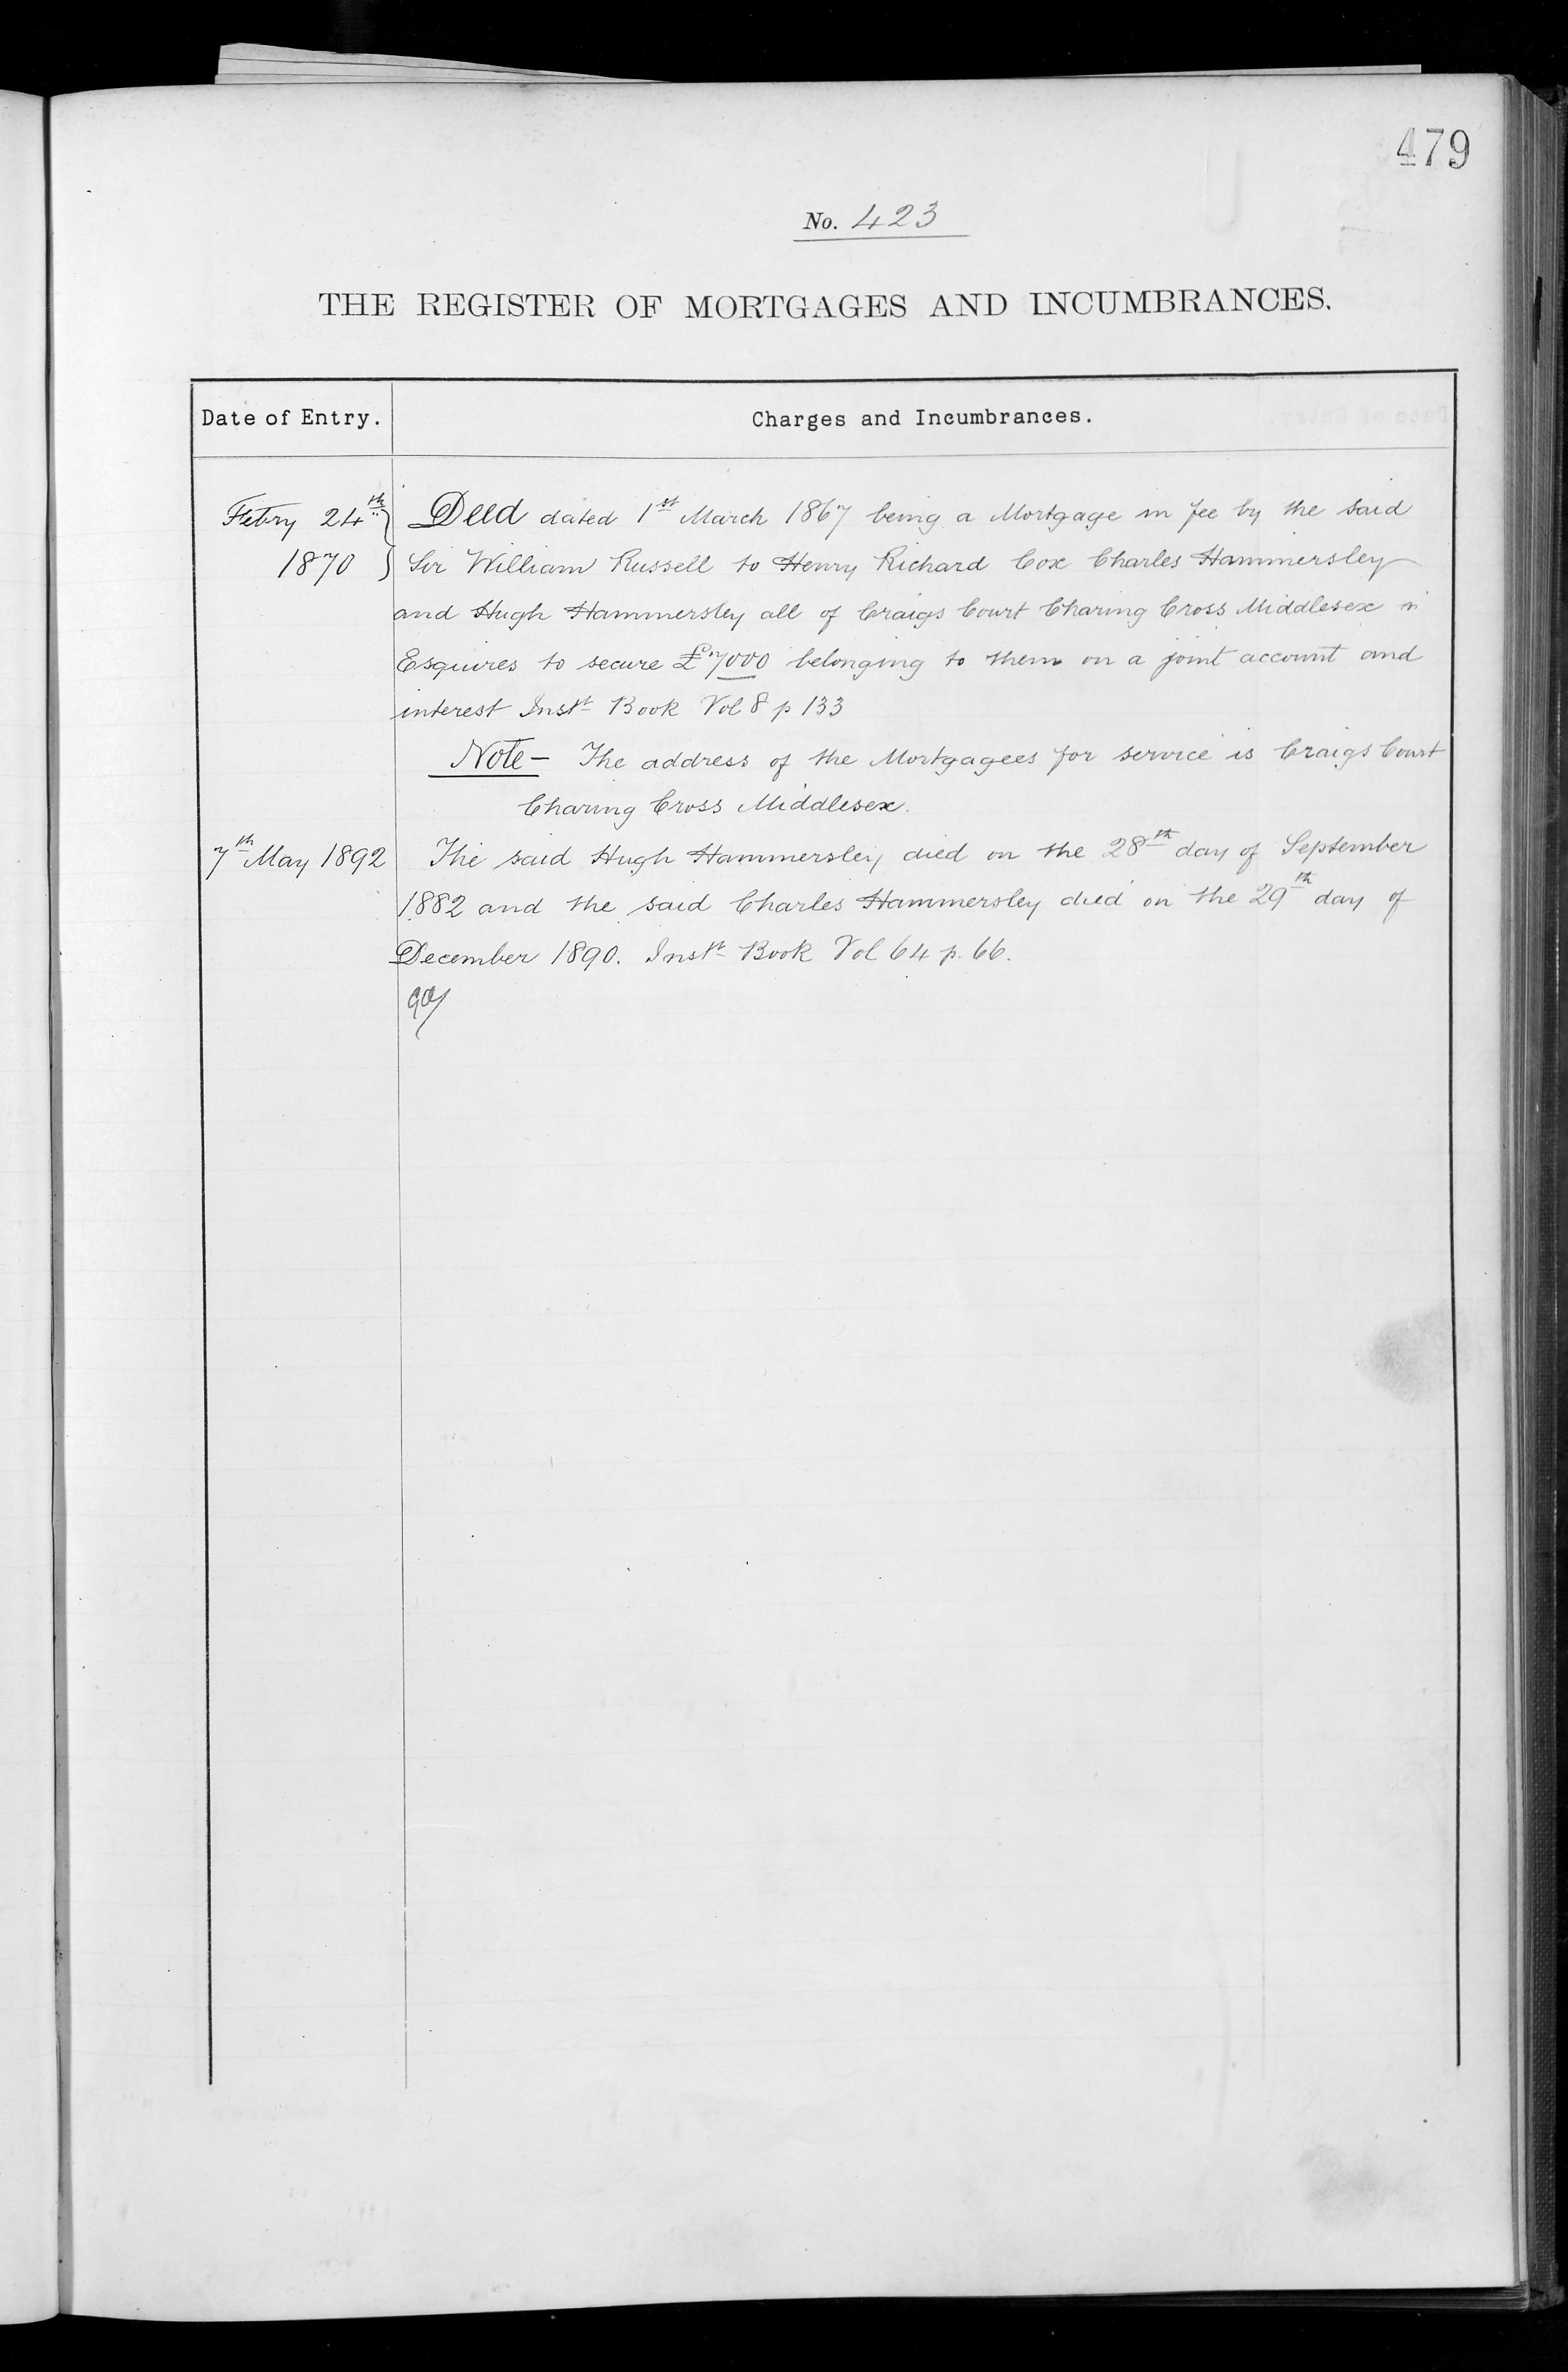 479
No. 423
THE REGISTER OF MORTGAGES AND INCUMBRANCES.
Date of Entry. Charges and Incumbrances.
Febry 24th Deed dated 1st March 1867 being a Mortgage in fee by the said
1870 Sir William Russell to Henry Richard Cox Charles Hammersley
and Hugh Hammersley all of Craigs Court Charing Cross Middlesex
Esquires to secure £7000 belonging to them on a joint account and
interest Instt Book Vol 8 p 133
Note - The address of the Mortgagees for service is Craigs Court
Charing Cross Middlesex.
7th May 1892 The said Hugh Hammersley died on the 28th day of September
1882 and the said Charles Hammersley died on the 29th day of
December 1890. Instt Book Vol 64 p. 66.